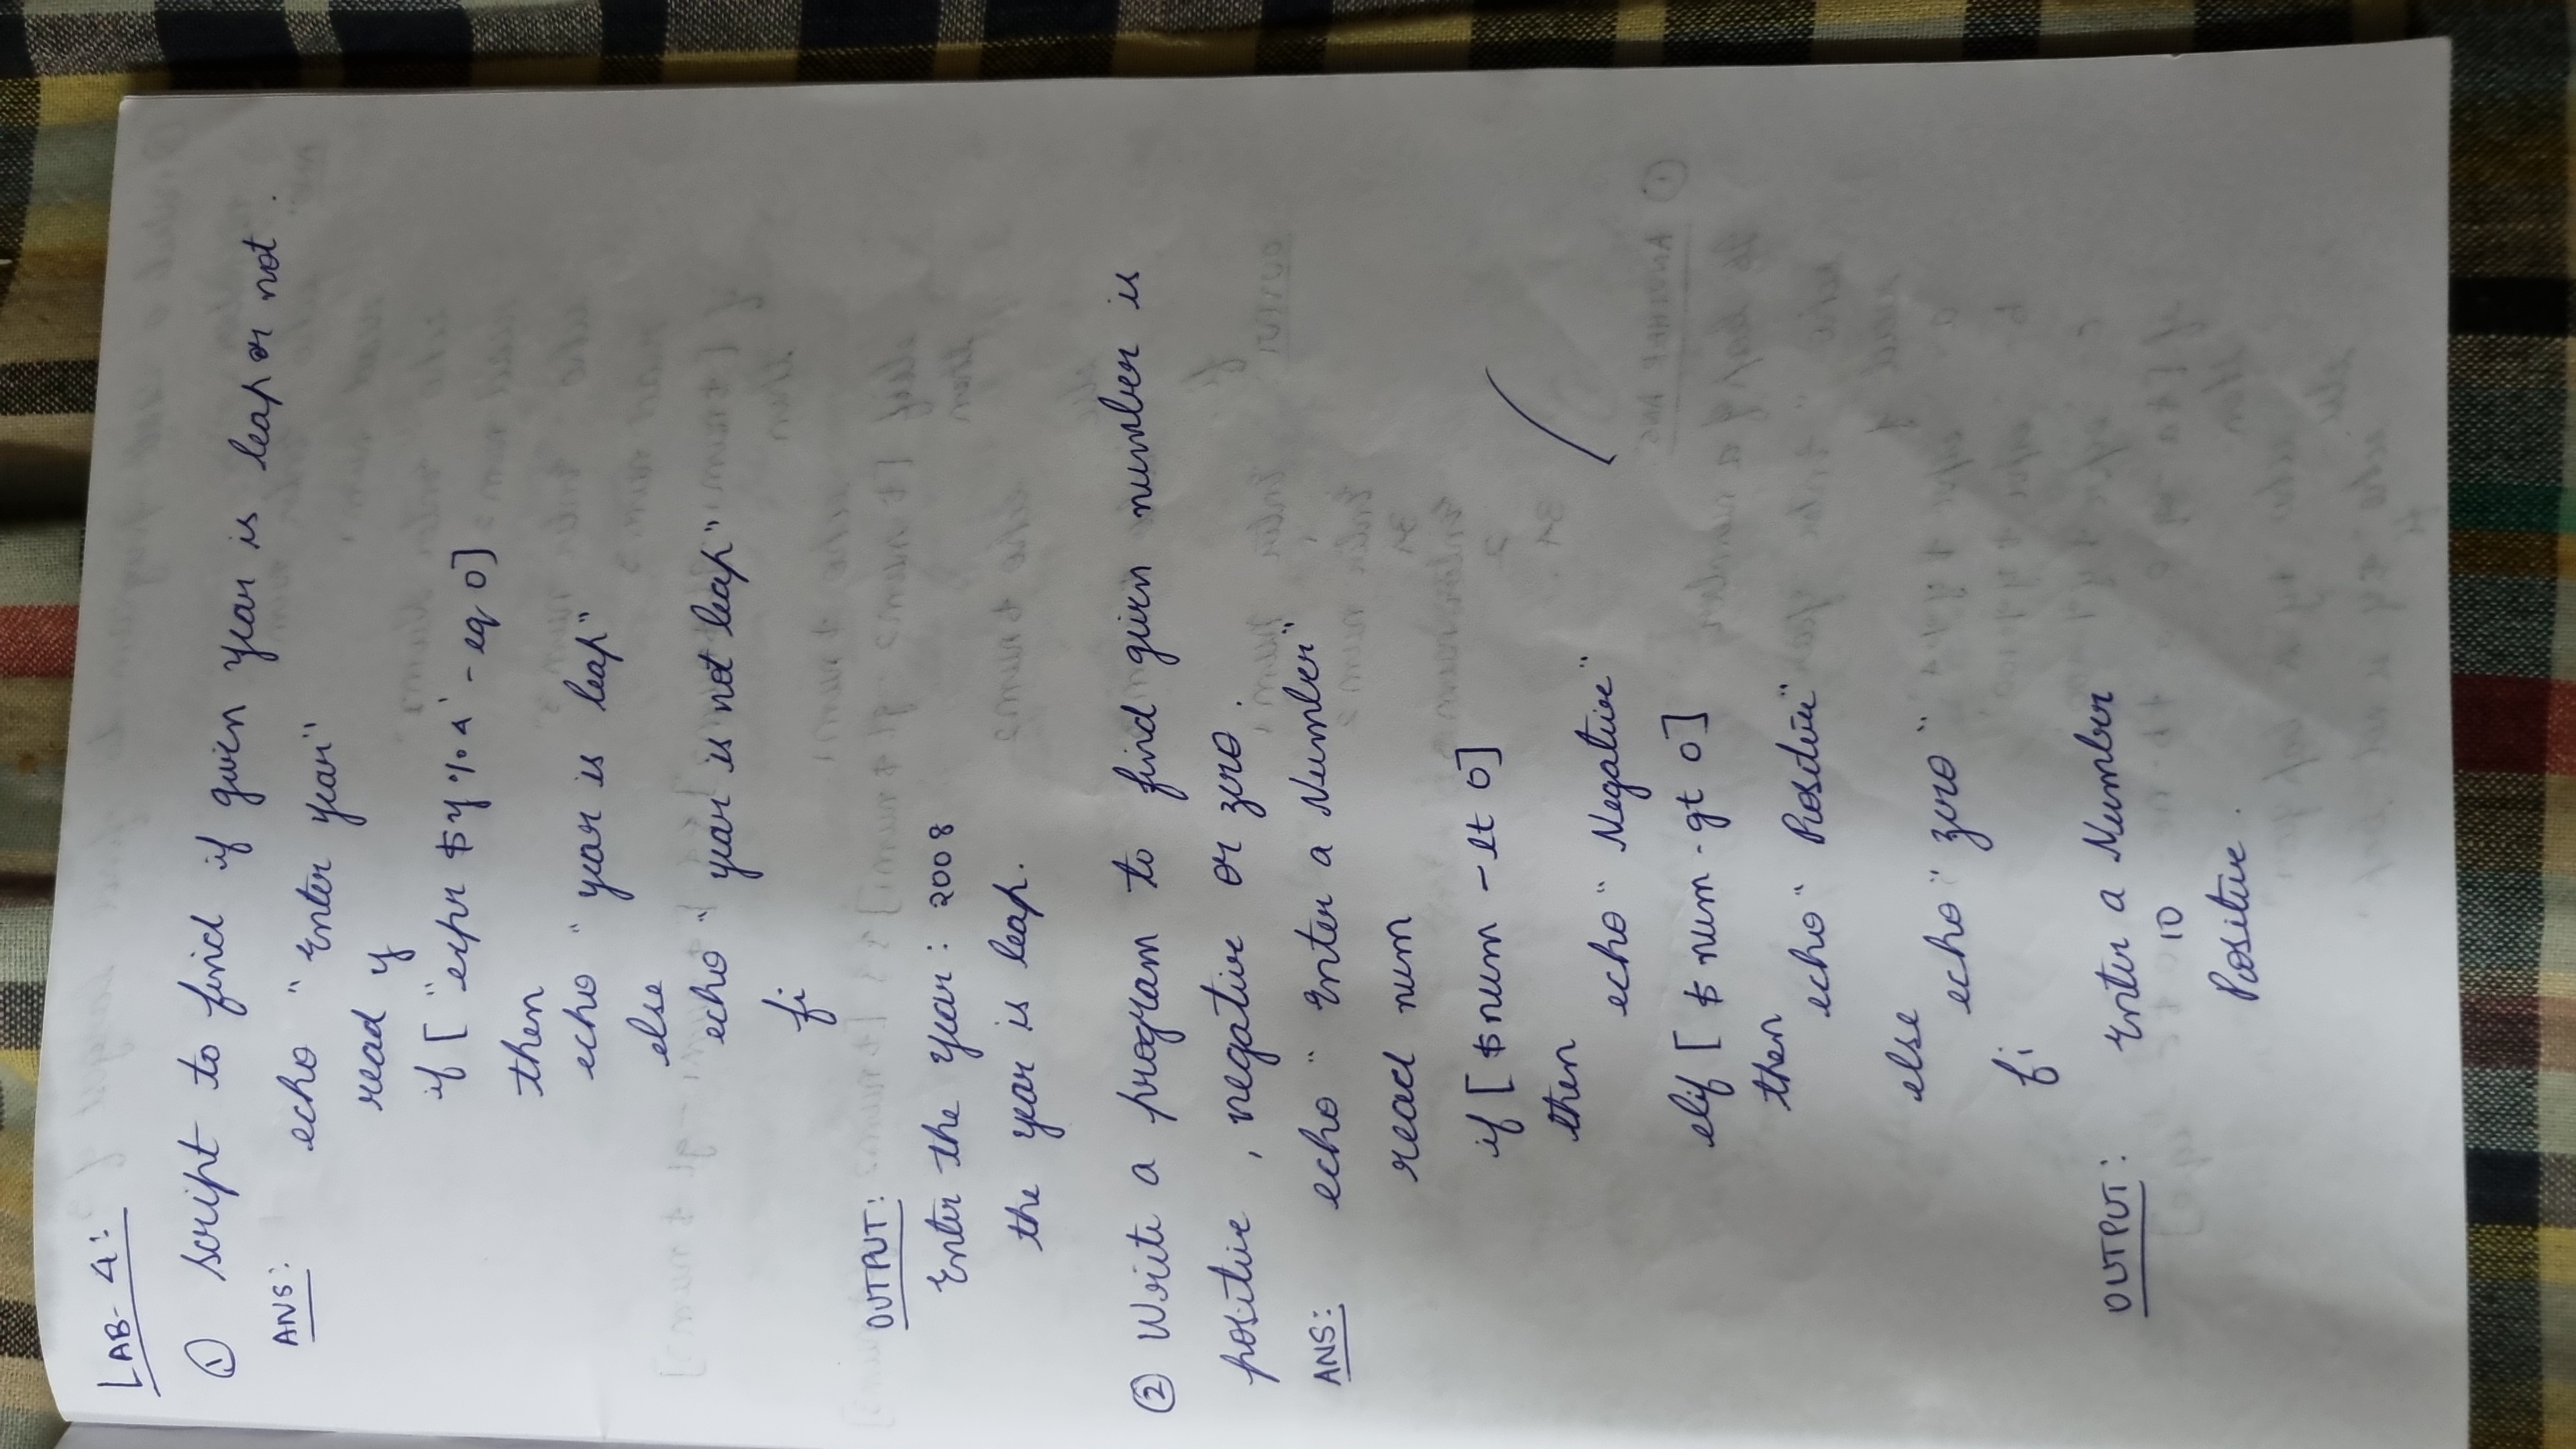 LAB-4:
① script to find if given year is leap or not.
ANS: echo "Enter year"
read y
if [ "expr $y % 4' -eq 0]
then
echo "year is leap"
else
echo "year is not leap"
fi
OUTPUT:
Enter the year: 2008
the year is leap.
② Write a program to find given number is
positive, negative or zero.
ANS: echo "Enter a Number"
read num
if [ $num -lt 0]
then
echo "Negative"
elif [ $ num -gt 0]
then
echo "Positive"
else
echo "zero"
fi
OUTPUT: Enter a Number
10
Positive.